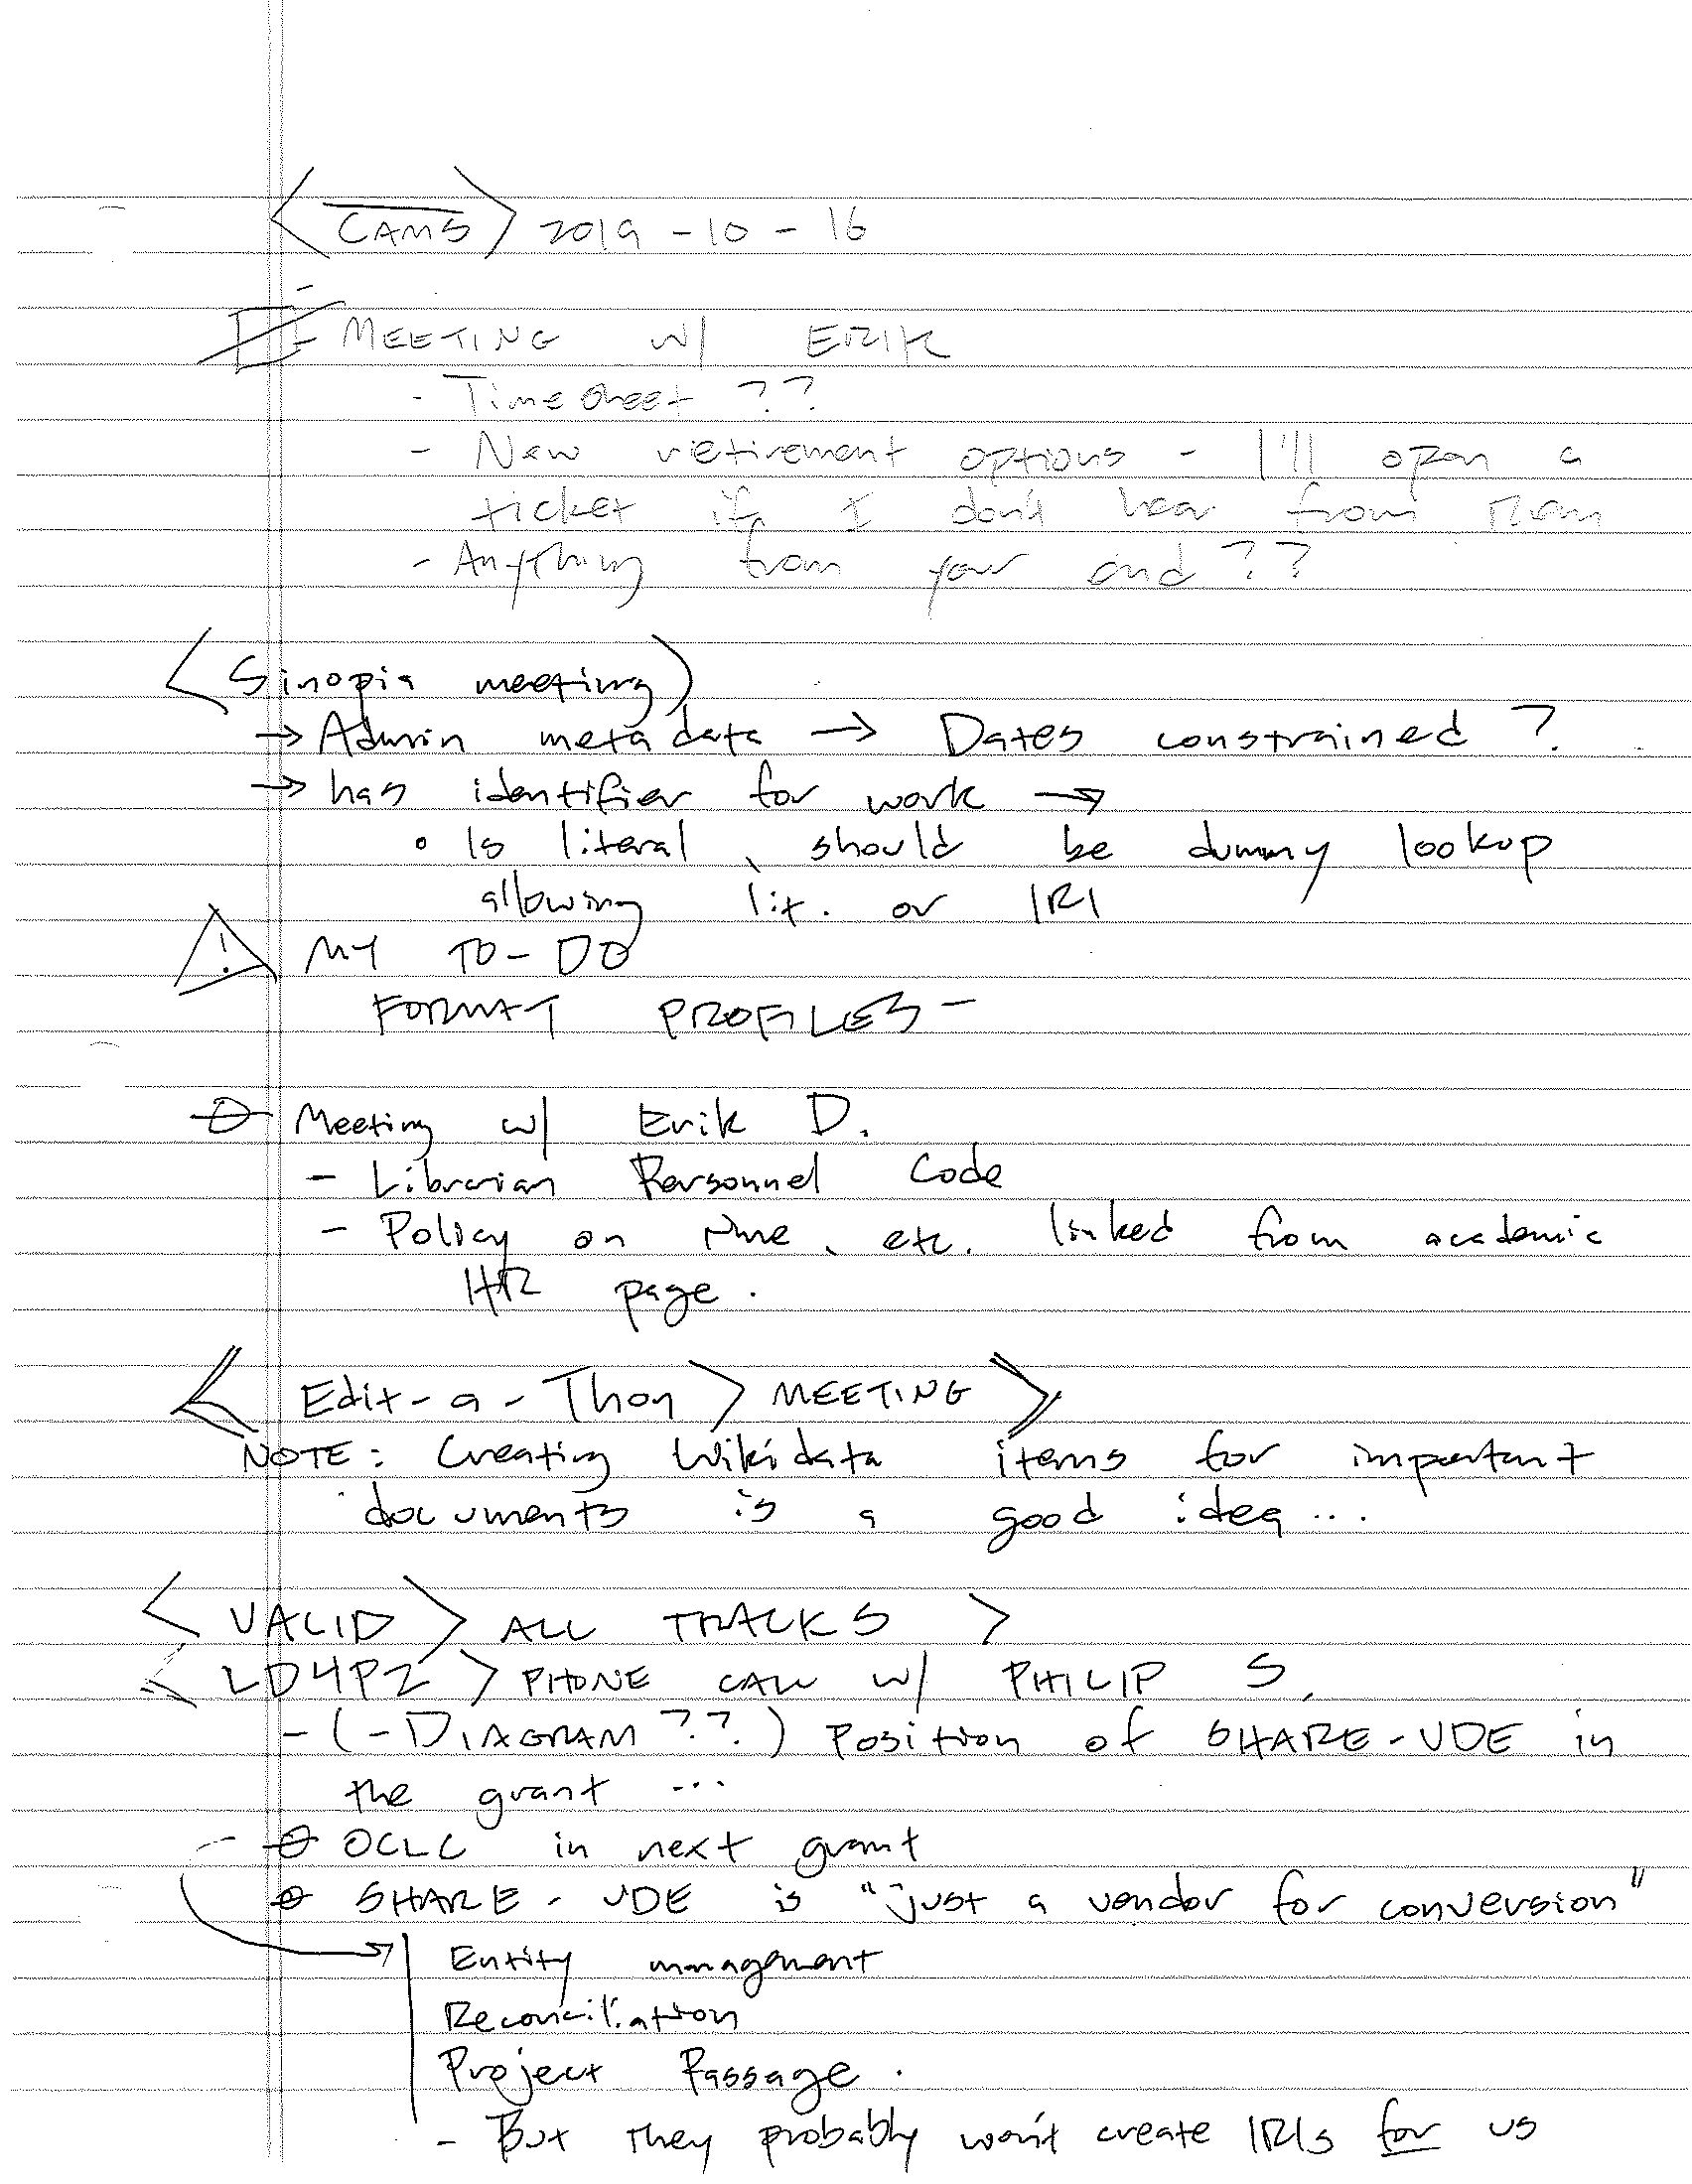 <CAMS> 2019-10-16
MEETING w/ ERIK
- Timesheet ??
- New retirement options - I'll open a
ticket if I don't hear from them
- Anything from your end ??
<Sinopia meeting>
→ Admin metadata → Dates constrained ?
→ has identifier for work →
• Is literal, should be dummy lookup
allowing lit. or IRI
! MY TO-DO
FORMAT PROFILES -
Meeting w/ Erik D.
- Librarian Personnel Code
- Policy on time, etc. linked from academic
HR page.
<Edit-a-Thon> MEETING>
NOTE: Creating Wikidata items for important
documents is a good idea...
<VALID> ALL TRACKS >
<LD4P2> PHONE CALL w/ PHILIP S.
- (-DIAGRAM ??) Position of SHARE-VDE in
the grant ...
OCLC in next grant
SHARE-VDE is "just a vendor for conversion"
→ Entity management
Reconciliation
Project Passage.
- But they probably won't create IRIs for us